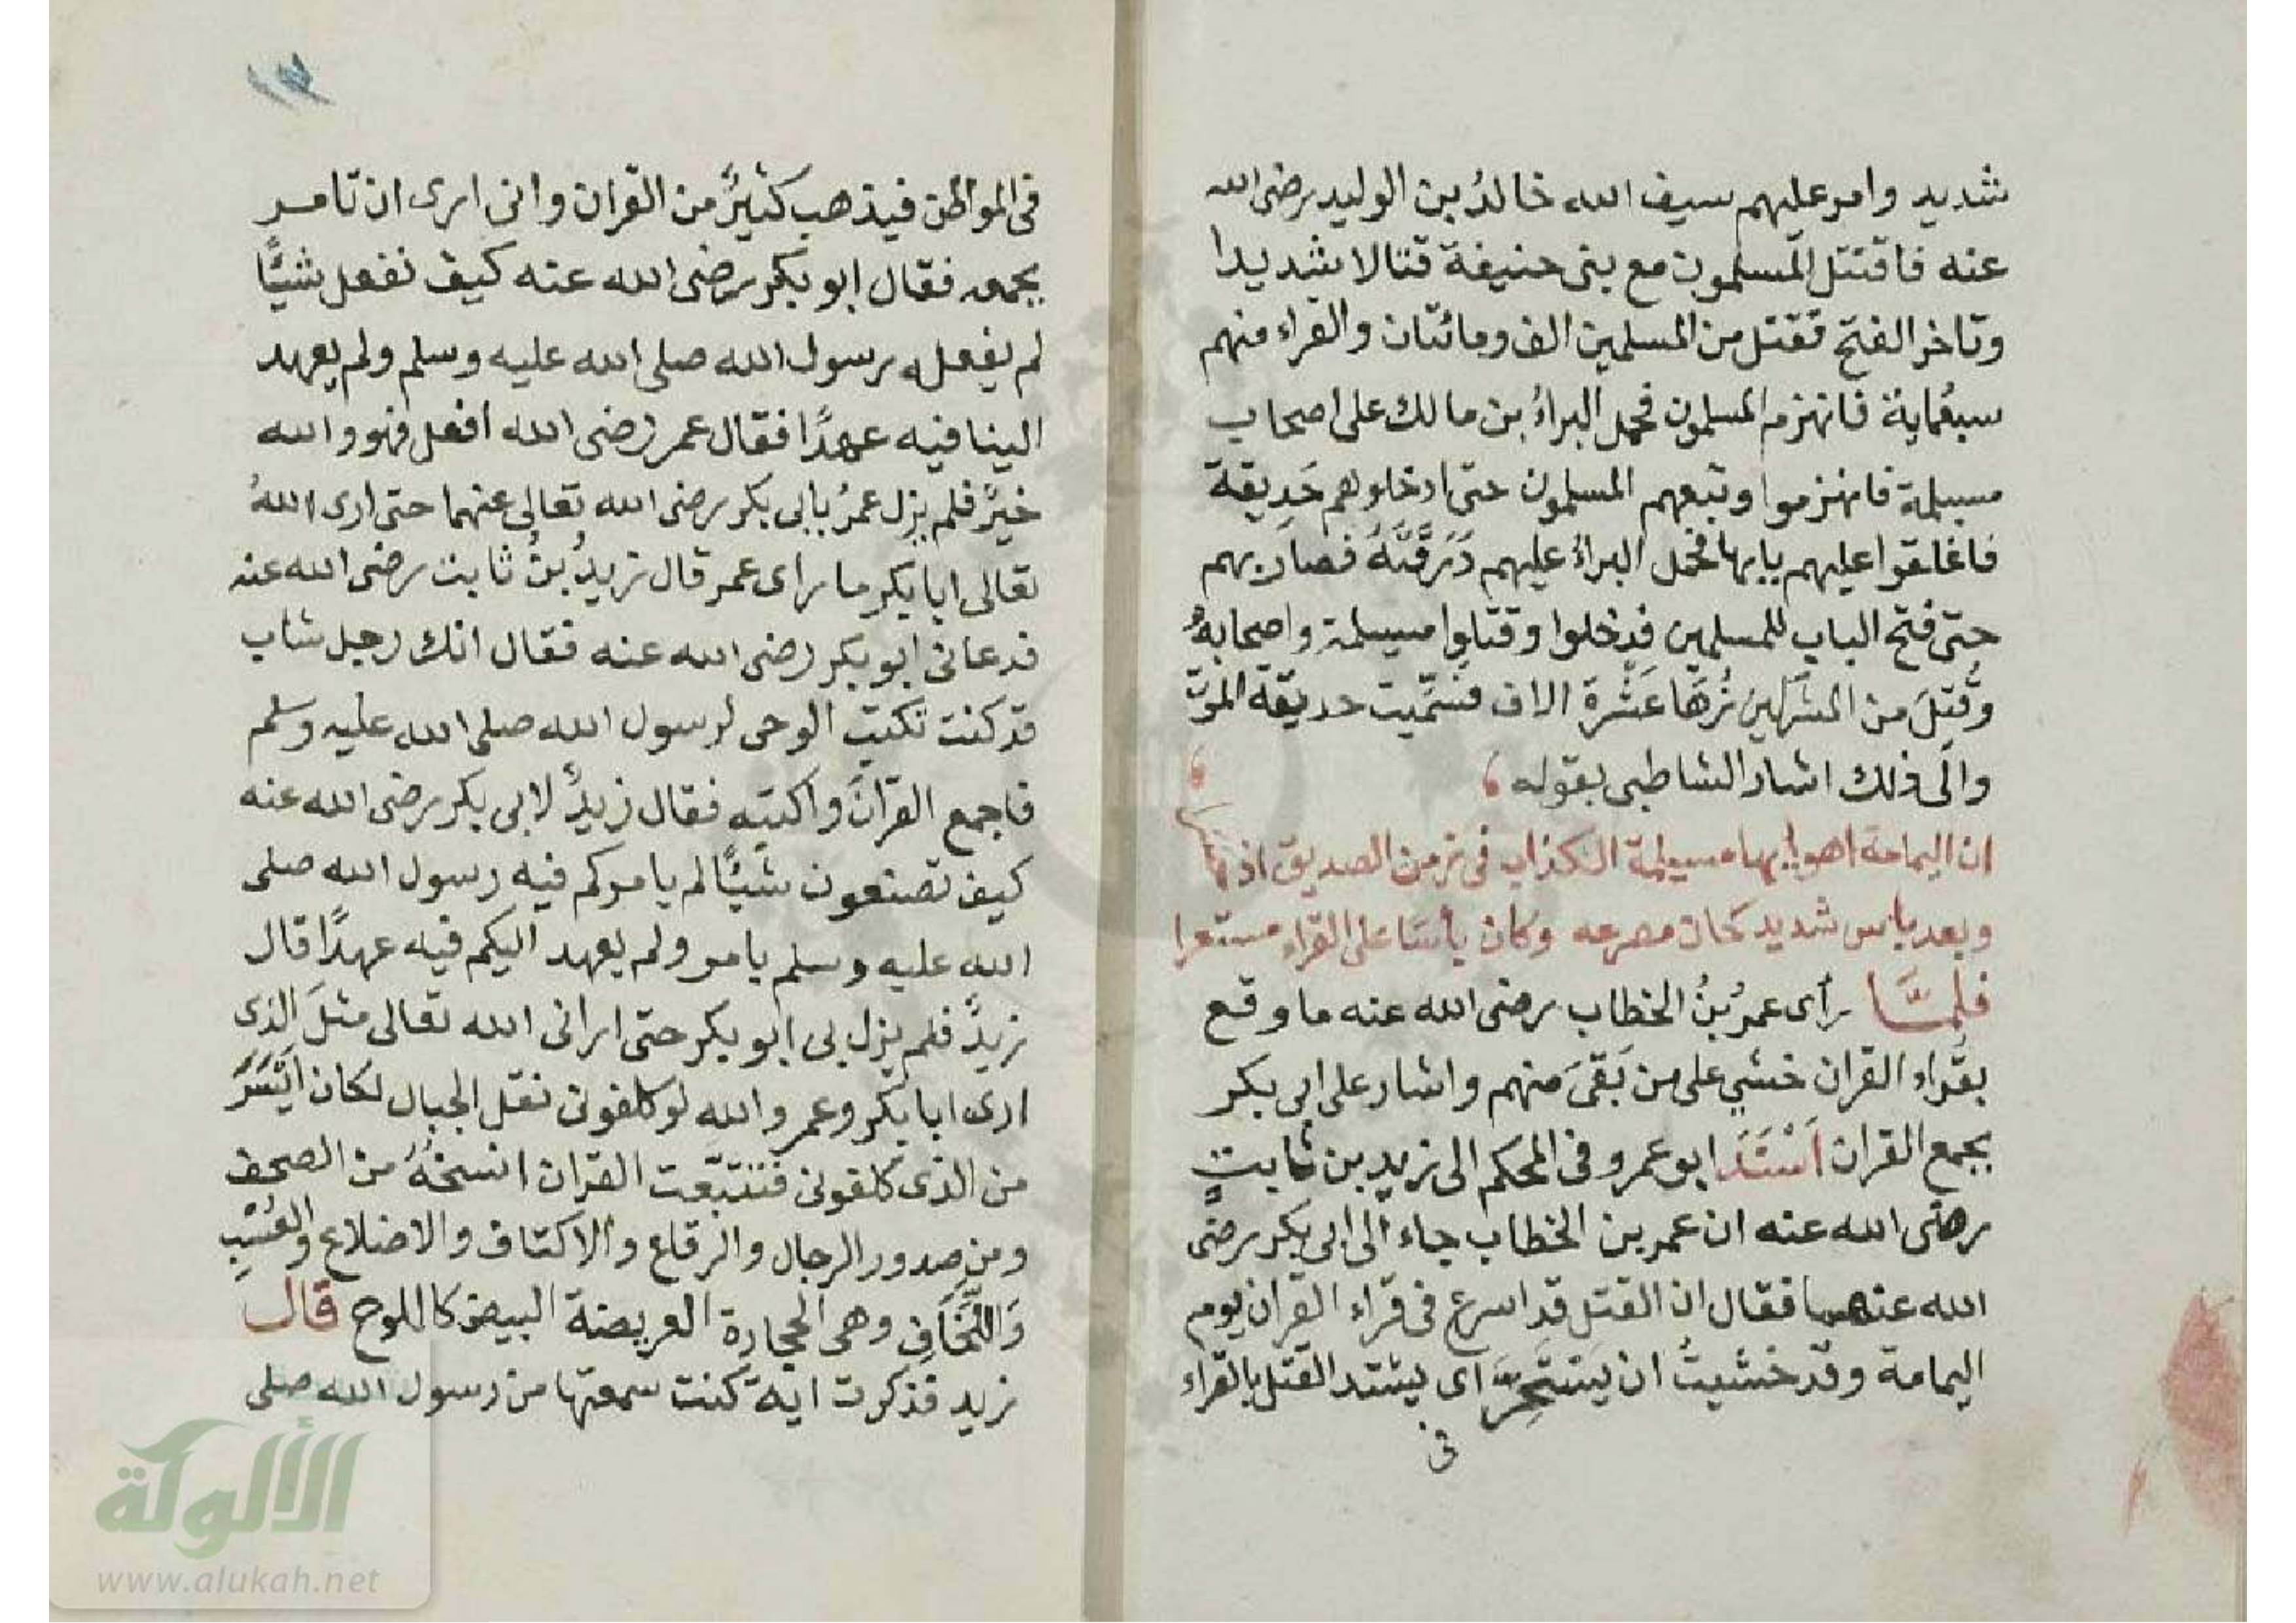 شديد وامر عليهم سيف الله خالدُ بن الوليد رضى الله
عنه فاقتتل المسلمون مع بنى حنيفة قتالا شديدا
وتاخر الفتح فقتل من المسلمين الف ومائتان والقراء منهم
سبعماية فانهزم المسلمون فحمل البراءُ بن مالك على اصحاب
مسيلمة فانهزموا وتبعهم المسلمون حتى ادخلوهم حَدِيقة
فاغلقوا عليهم بابها فحمل البراءُ عليهم دَرَقَتَهُ فصارَ بهم
حتى فتح الباب للمسلمين فدخلوا وقتلوا مسيلمة واصحابهُ
وقُتِلَ من المشركين زُهَا عَشْرَة الاف فسُمِّيت حديقة الموت
والى ذلك اشار الشاطبى بقوله
ان اليمامة اهواها مسيلمة الكذاب فى زمن الصديق اذ
وبعد باس شديد كان مصرعه وكان بأسًا على القراء مستعرا
فلمّا رأى عمرُ بنُ الخطاب رضى الله عنه ما وقع
بقُرّاء القران خشي على من بَقىَ منهم واشار على ابى بكر
بجمع القران اَسْنَدَ ابو عمرو فى المحكم الى زيد بن ثابتٍ
رضى الله عنه ان عمر بن الخطاب جاء الى ابى بكر رضى
الله عنهما فقال ان القتل قد اسرع فى قراء القران يوم
اليمامة وقد خشيتُ ان يَسْتَحِرَّ اى يشتد القتل بالقراء
فى
١٣
فى المواطن فيذهب كثيرٌ من القران وانى ارى ان تامر
بجمعه فقال ابو بكر رضى الله عنه كيف نفعل شيًّا
لم يفعله رسول الله صلى الله عليه وسلم ولم يعهد
الينا فيه عهدًا فقال عمر رضى الله افعل فهو والله
خيرٌ فلم يزل عمرُ بابى بكر رضى الله تعالى عنهما حتى ارى اللهُ
تعالى ابا بكر ما راى عمر قال زيدُ بنُ ثابت رضى الله عنه
فدعانى ابو بكر رضى الله عنه فقال انك رجل شاب
قد كنت تكتب الوحى لرسول الله صلى الله عليه وسلم
فاجمع القرانَ واكتبه فقال زيدٌ لابى بكر رضى الله عنه
كيف تصنعون شيًّا لم يامركم فيه رسول الله صلى
الله عليه وسلم بامر ولم يعهد اليكم فيه عهدًا قال
زيدٌ فلم يزل بى ابو بكر حتى ارانى الله تعالى مثلَ الذى
ارى ابا بكر وعمر والله لو كلفونى نقل الجبال لكان ايْسَرَ
من الذى كلفونى فتتبّعت القران انسخهُ من الصحف
ومن صدور الرجال والرقاع والاكتاف والاضلاع والعُسُبِ
وَاللِّخَافِ وهى الحجارة العريضة البيض كاللوح قال
زيد فذكرت اية كنت سمعتها من رسول الله صلى
الألوكة
www.alukah.net